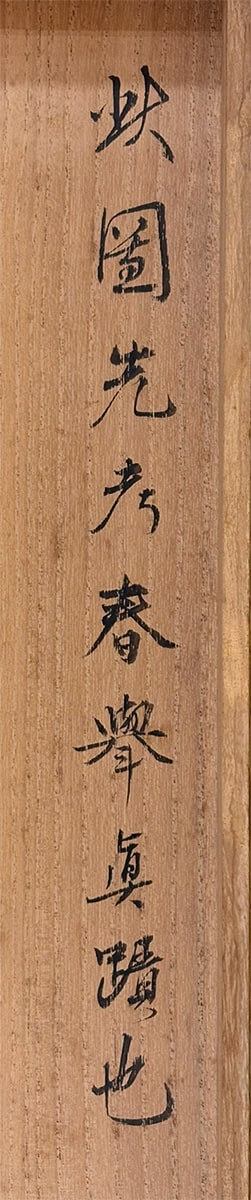 此圖先考春擧眞蹟也